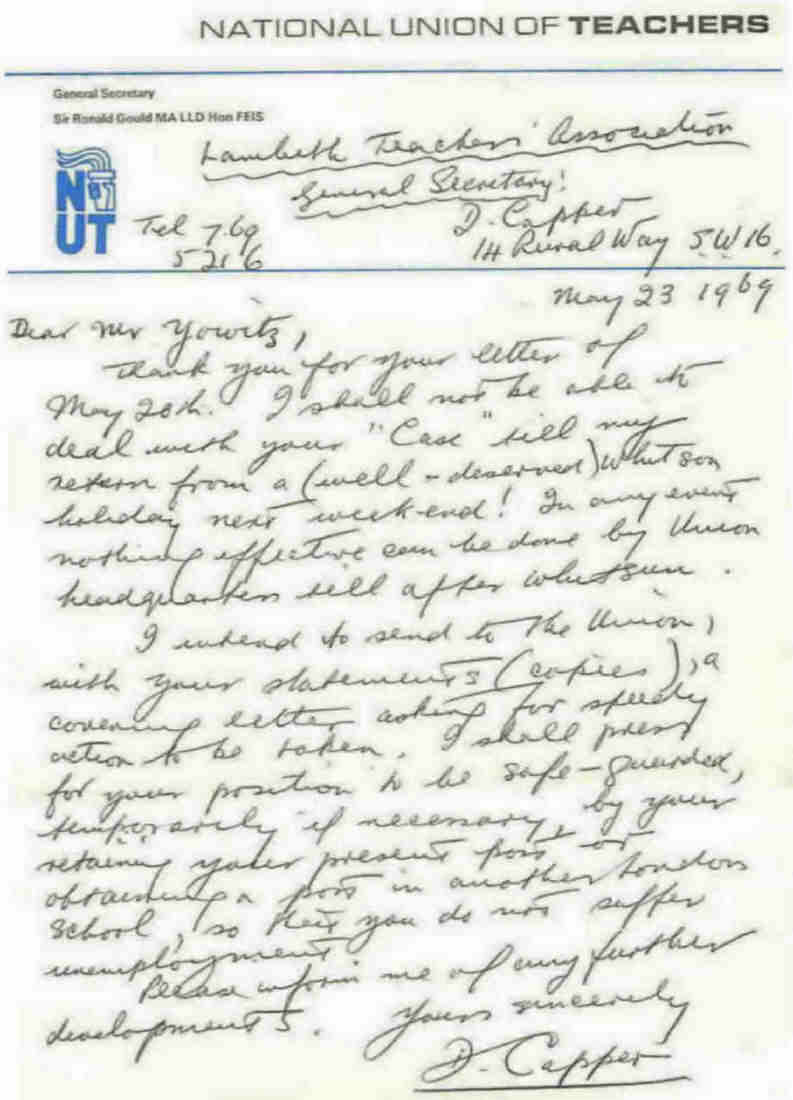 NATIONAL UNION OF TEACHERS
General Secretary
Sir Ronald Gould MA LLD Hon FEIS
Lambeth Teachers' Association
General Secretary:
NUT
D. Capper
Tel 769
5216
14 Rural Way SW16.
May 23 1969
Dear Mr Yowitz,
Thank you for your letter of
May 20th. I shall not be able to
deal with your "Case" till my
return from a (well-deserved) Whitsun
holiday next week-end! In any event
nothing effective can be done by Union
headquarters till after Whitsun.
I intend to send to the Union,
with your statements (copies), a
covering letter asking for speedy
action to be taken. I shall press
for your position to be safe-guarded,
temporarily if necessary, by your
retaining your present post or
obtaining a post in another London
School, so that you do not suffer
unemployment.
Please inform me of any further
developments. Yours sincerely
D. Capper